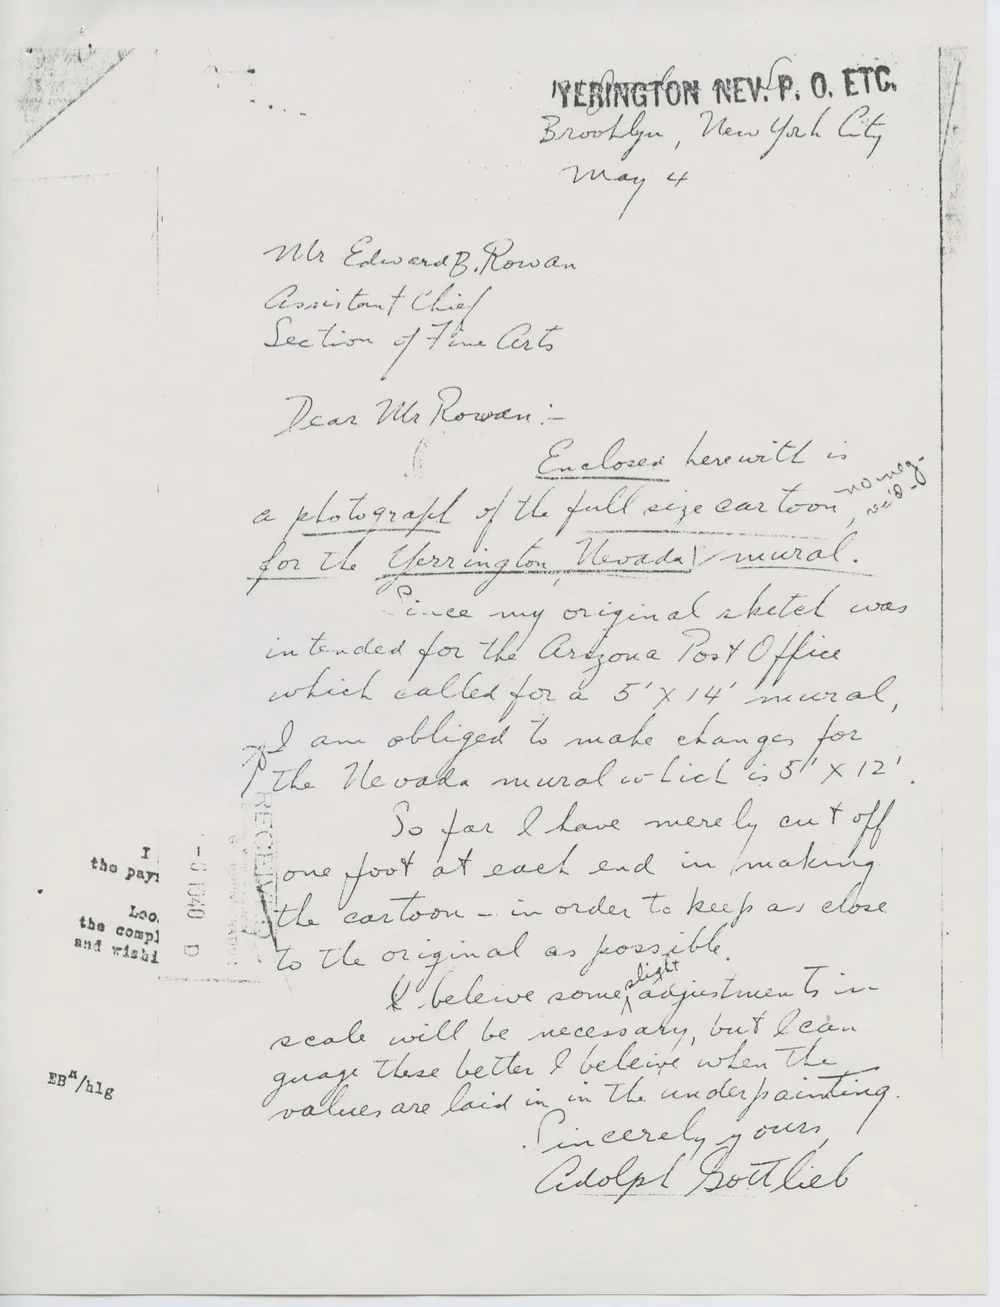 YERINGTON NEV. P. O. ETC.
Brooklyn, New York City
May 4
Mr Edward B. Rowan
Assistant Chief
Section of Fine Arts
Dear Mr Rowan:-
Enclosed herewith is
a photograph of the full size cartoon, no neg. rec'd-
for the Yerrington, Nevada mural.
Since my original sketch was
intended for the Arizona Post Office
which called for a 5' X 14' mural,
I am obliged to make changes for
the Nevada mural which is 5' X 12'.
So far I have merely cut off
one foot at each end in making
the cartoon - in order to keep as close
to the original as possible.
I beleive some slight adjustments in
scale will be necessary, but I can
guage these better I beleive when the
values are laid in in the underpainting.
Sincerely yours,
Adolph Gottlieb
I
the pay
Loo
the compl
and wishi
RECEIVED
1940
D
EBR/hlg